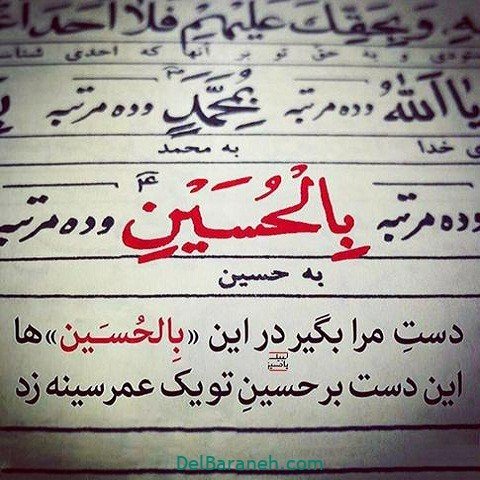 هِ، وَبِحَقِّكَ عَلَيْهِمْ فَلَا أَحَدَ أَعْ
و به حق تو بر آنها که احدی
يَا اَللّٰهُ وده مرتبه بِمُحَمَّدٍ وده مرتبه
ی خدا به محمد
وده مرتبه بِالْحُسَيْنِ وده مرتبه
به حسین
دستِ مرا بگیر در این «بِالحُسَین» ها
این دست بر حسینِ تو یک عمر سینه زد
DelBaraneh.com